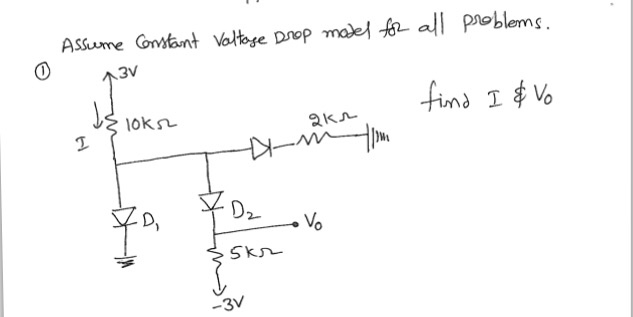 Assume Constant Voltage Drop model for all problems.
①
3V
find I & V₀
10KΩ
I
2KΩ
D₁
D₂
V₀
5KΩ
-3V